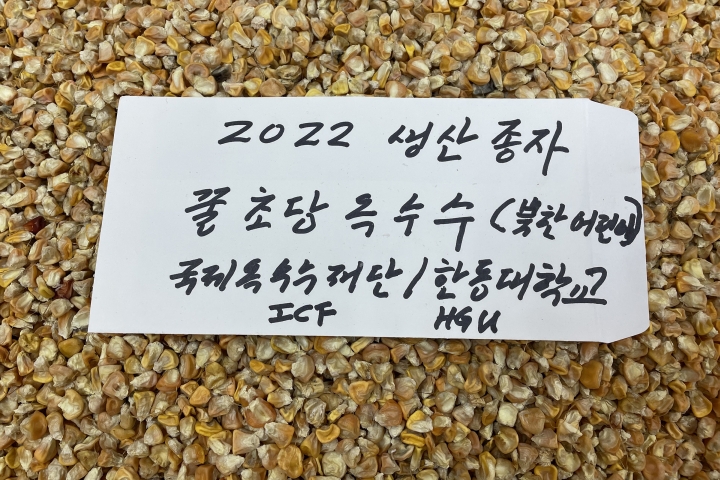 2022 생산 종자
꿀 초당 옥수수 (북한 어린이)
국제옥수수재단 / 한동대학교
ICF HGU